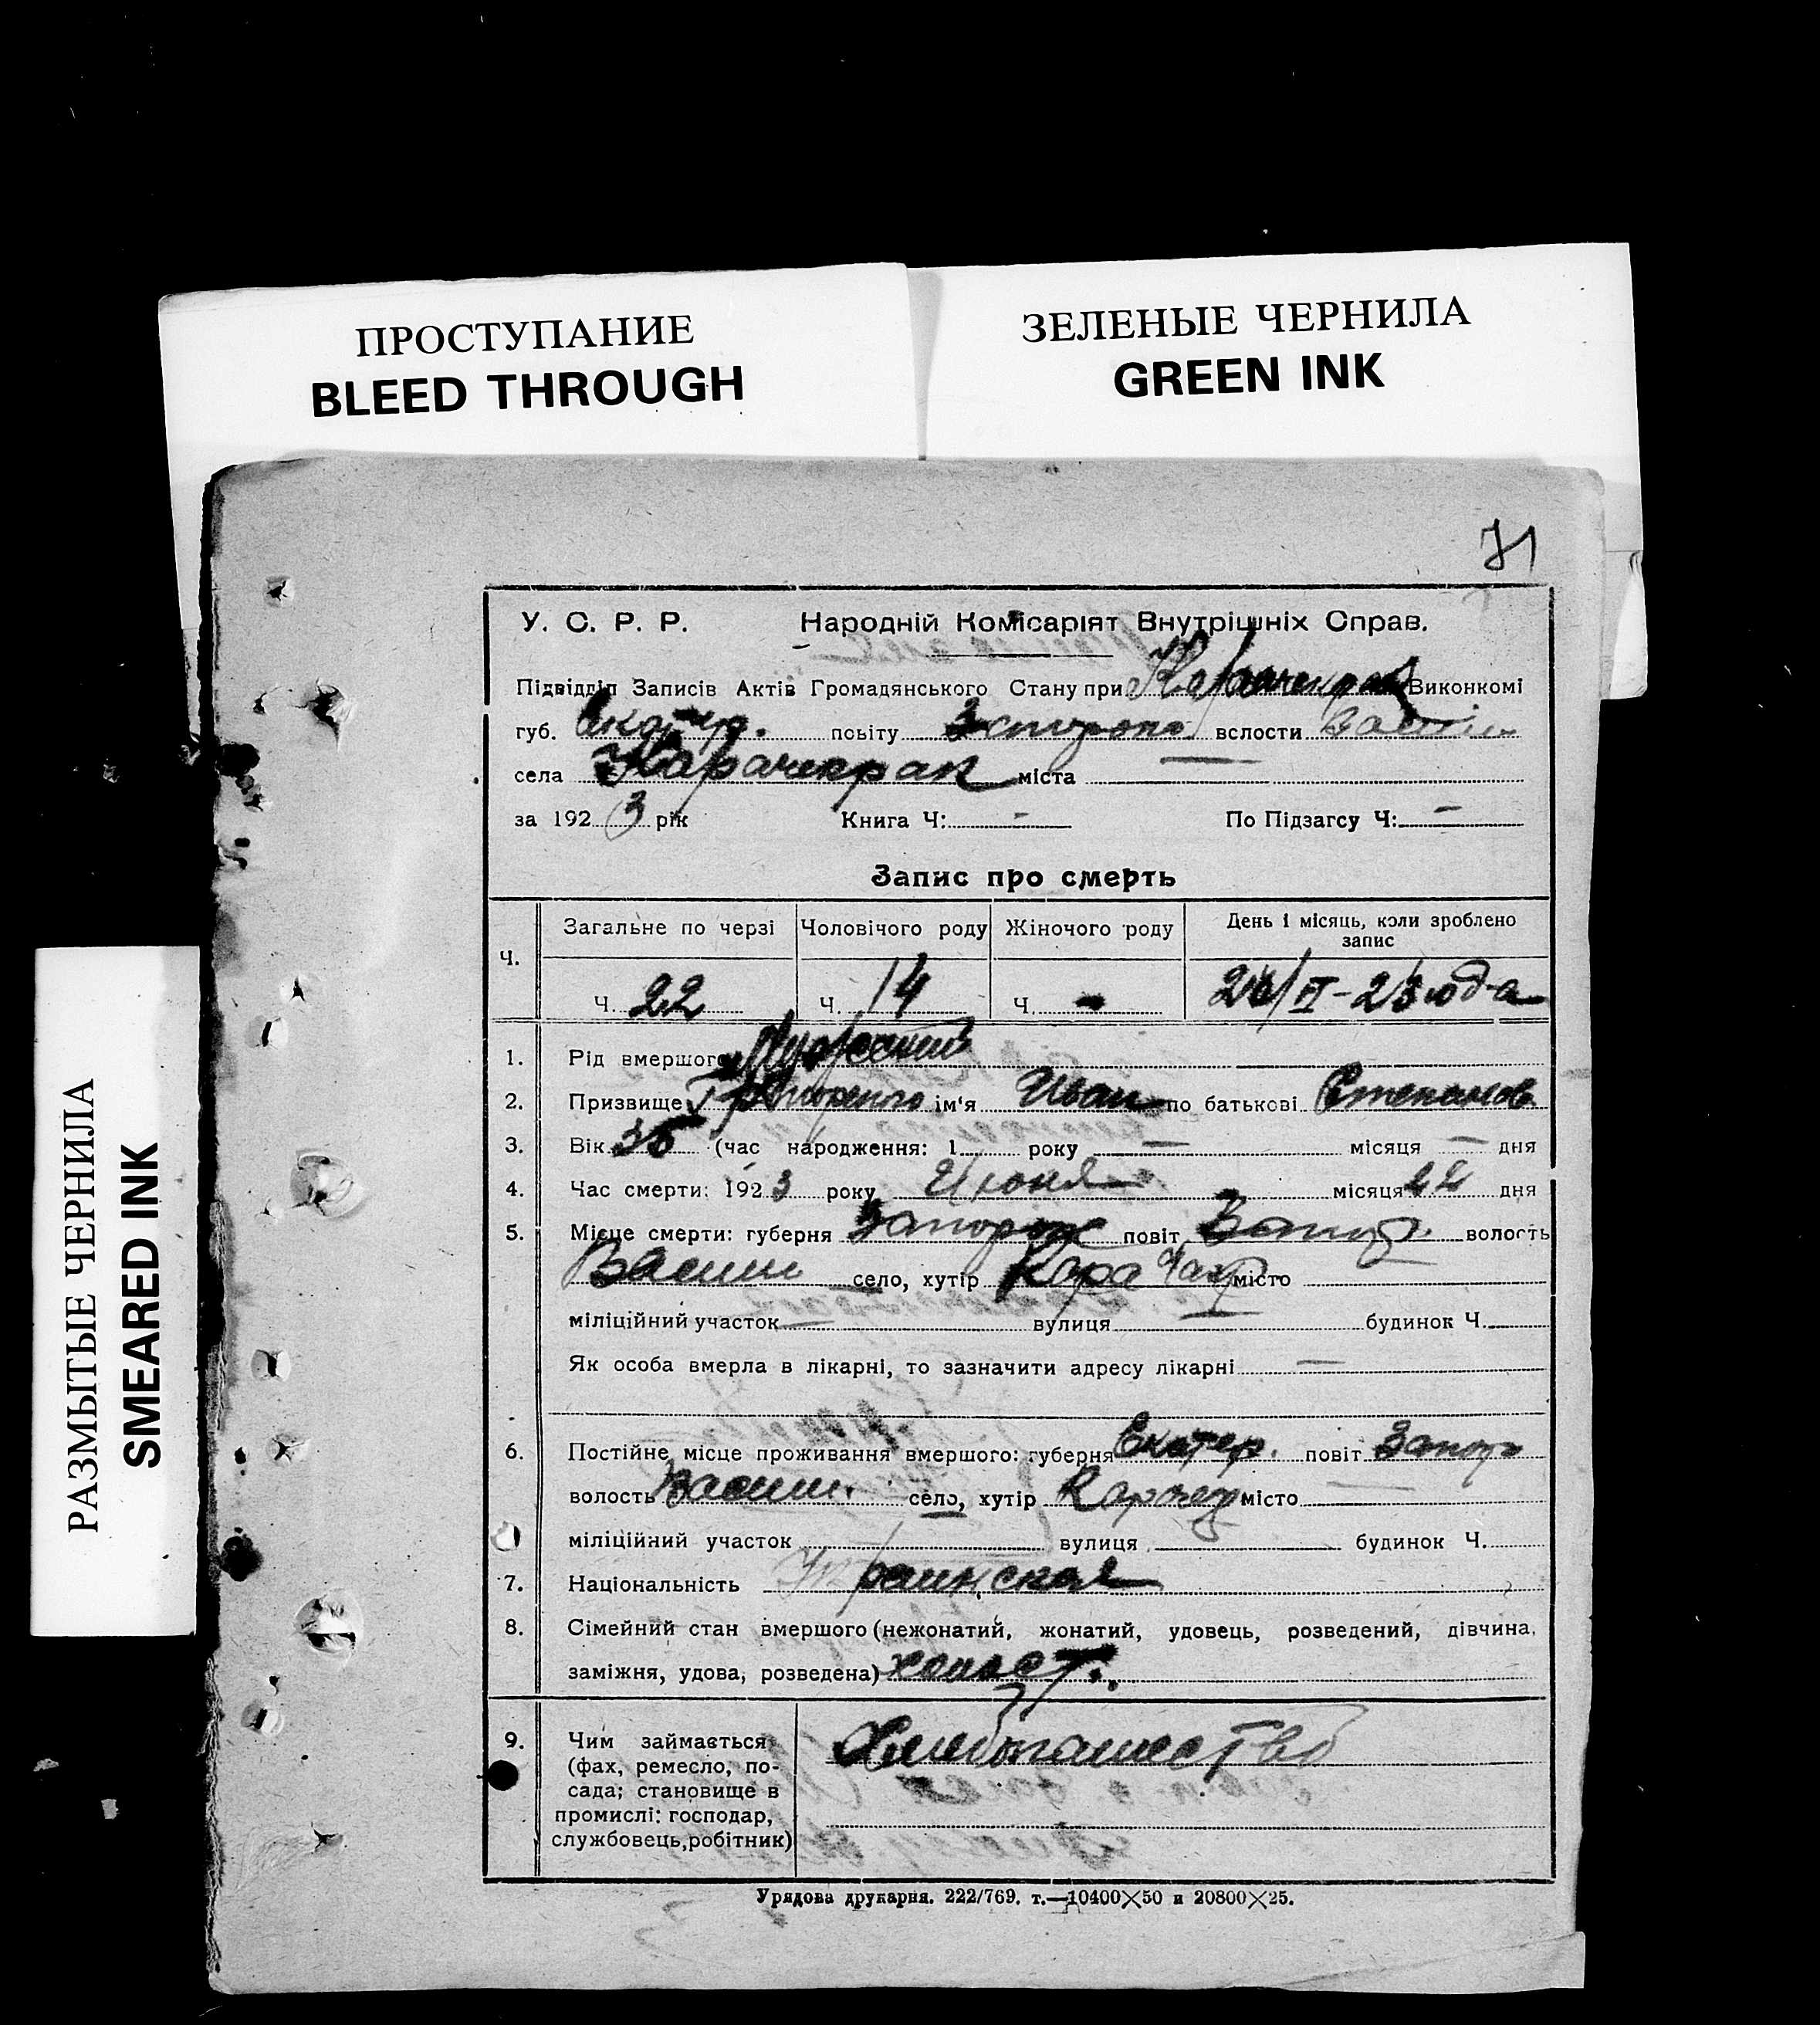 ПРОСТУПАНИЕ
BLEED THROUGH
ЗЕЛЕНЫЕ ЧЕРНИЛА
GREEN INK
РАЗМЫТЫЕ ЧЕРНИЛА
SMEARED INK
71
У. С. Р. Р. Народній Комісаріят Внутрішніх Справ.
Підвідділ Записів Актів Громадянського Стану при Карачекрак Виконкомі
губ. Екатер. повіту волости Васил
села Карачекрак міста —
за 1923 рік Книга Ч: — По Підзагсу Ч: —
Запис про смерть
Ч. Загальне по черзі Чоловічого роду Жіночого роду День і місяць, коли зроблено запис
Ч. 22 Ч. 14 Ч. —
1. Рід вмершого Мужеский
2. Призвище ім'я Иван по батькові Степанов
3. Вік 35 (час народження: 1 року — місяця — дня
4. Час смерти: 1923 року Июня місяця 22 дня
5. Місце смерти: губерня Запорож повіт Запор. волость
Васил село, хутір Кара місто
міліційний участок — вулиця — будинок Ч.
Як особа вмерла в лікарні, то зазначити адресу лікарні —
6. Постійне місце проживання вмершого: губерня Екатер. повіт Запор
волость Васил. село, хутір місто —
міліційний участок вулиця будинок Ч.
7. Національність Украинская
8. Сімейний стан вмершого (нежонатий, жонатий, удовець, розведений, дівчина,
заміжня, удова, розведена) холост.
9. Чим займається (фах, ремесло, по-
сада; становище в
промислі: господар,
службовець, робітник)
Хлебопашество
Урядова друкарня. 222/769. т.—10400×50 и 20800×25.